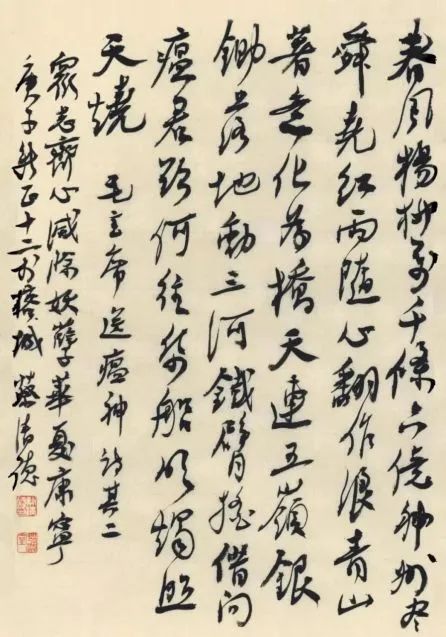 春風楊柳萬千條六億神州盡
舜堯紅雨隨心翻作浪青山
著意化為橋天連五嶺銀
鋤落地動三河鐵臂搖借問
瘟君欲何往紙船明燭照
天燒 毛主席送瘟神詩其二
眾志齊心滅除妖孽華夏康寧
庚子新正十二於榕城 蔡清德